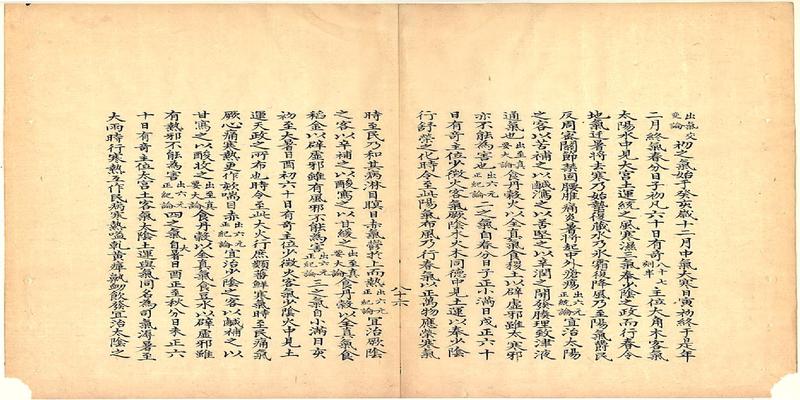 出氣交變論初之氣始于癸亥歲十二月中氣大寒日寅初終于是年
二月終氣春分日子初凡六十日有奇八十七刻半主位太角木客氣
太陽水中見太宮土運統之風寒濕三氣奉少陰之政而行春令
地氣遷暑將去寒乃始蟄復藏水乃冰霜復降風乃至陽氣鬱民
反周密關節禁固腰脽痛炎暑將起中外瘡瘍出六元正紀論宜治太陽
之客以苦補之以鹹瀉之以苦堅之以辛潤之開發腠理致津液
通氣也出至真要大論食丹穀以全真氣食稷以辟虛邪雖有寒邪
亦不能為害也出六元正紀論二之氣自春分日子正小滿日戌正六十
日有奇主位少徵火客氣厥陰木火木同德中見土運以奉少陰
行舒榮之化時令至此陽氣布風乃行春氣以正萬物應榮寒氣
時至民乃和其病淋目瞑目赤氣鬱於上而熱出六元正紀論宜治厥陰
之客以辛補之以酸瀉之以甘緩之出至真要大論食丹穀以全真氣食
稻金以辟虛邪雖有風邪不能為害出六元正紀論三之氣自小滿日亥
初至大暑日酉初六十日有奇主位少徵火客氣少陰火中見土
運天政之所布也時令至此大火行庶類蕃鮮寒氣時至民病氣
厥心痛寒熱更作欬喘目赤出六元正紀論宜治少陰之客以鹹補之以
甘瀉之以酸收之出至真要大論食丹穀以全真氣食豆水以辟虛邪雖
有熱邪不能為害出六元正紀論四之氣自大暑日酉正至秋分日未正六
十日有奇主位太宮土客氣太陰土運與氣同名為司氣溽暑至
大雨時行寒熱互作民病寒熱嗌乾黃癉鼽衄飲發宜治太陰之
八十六